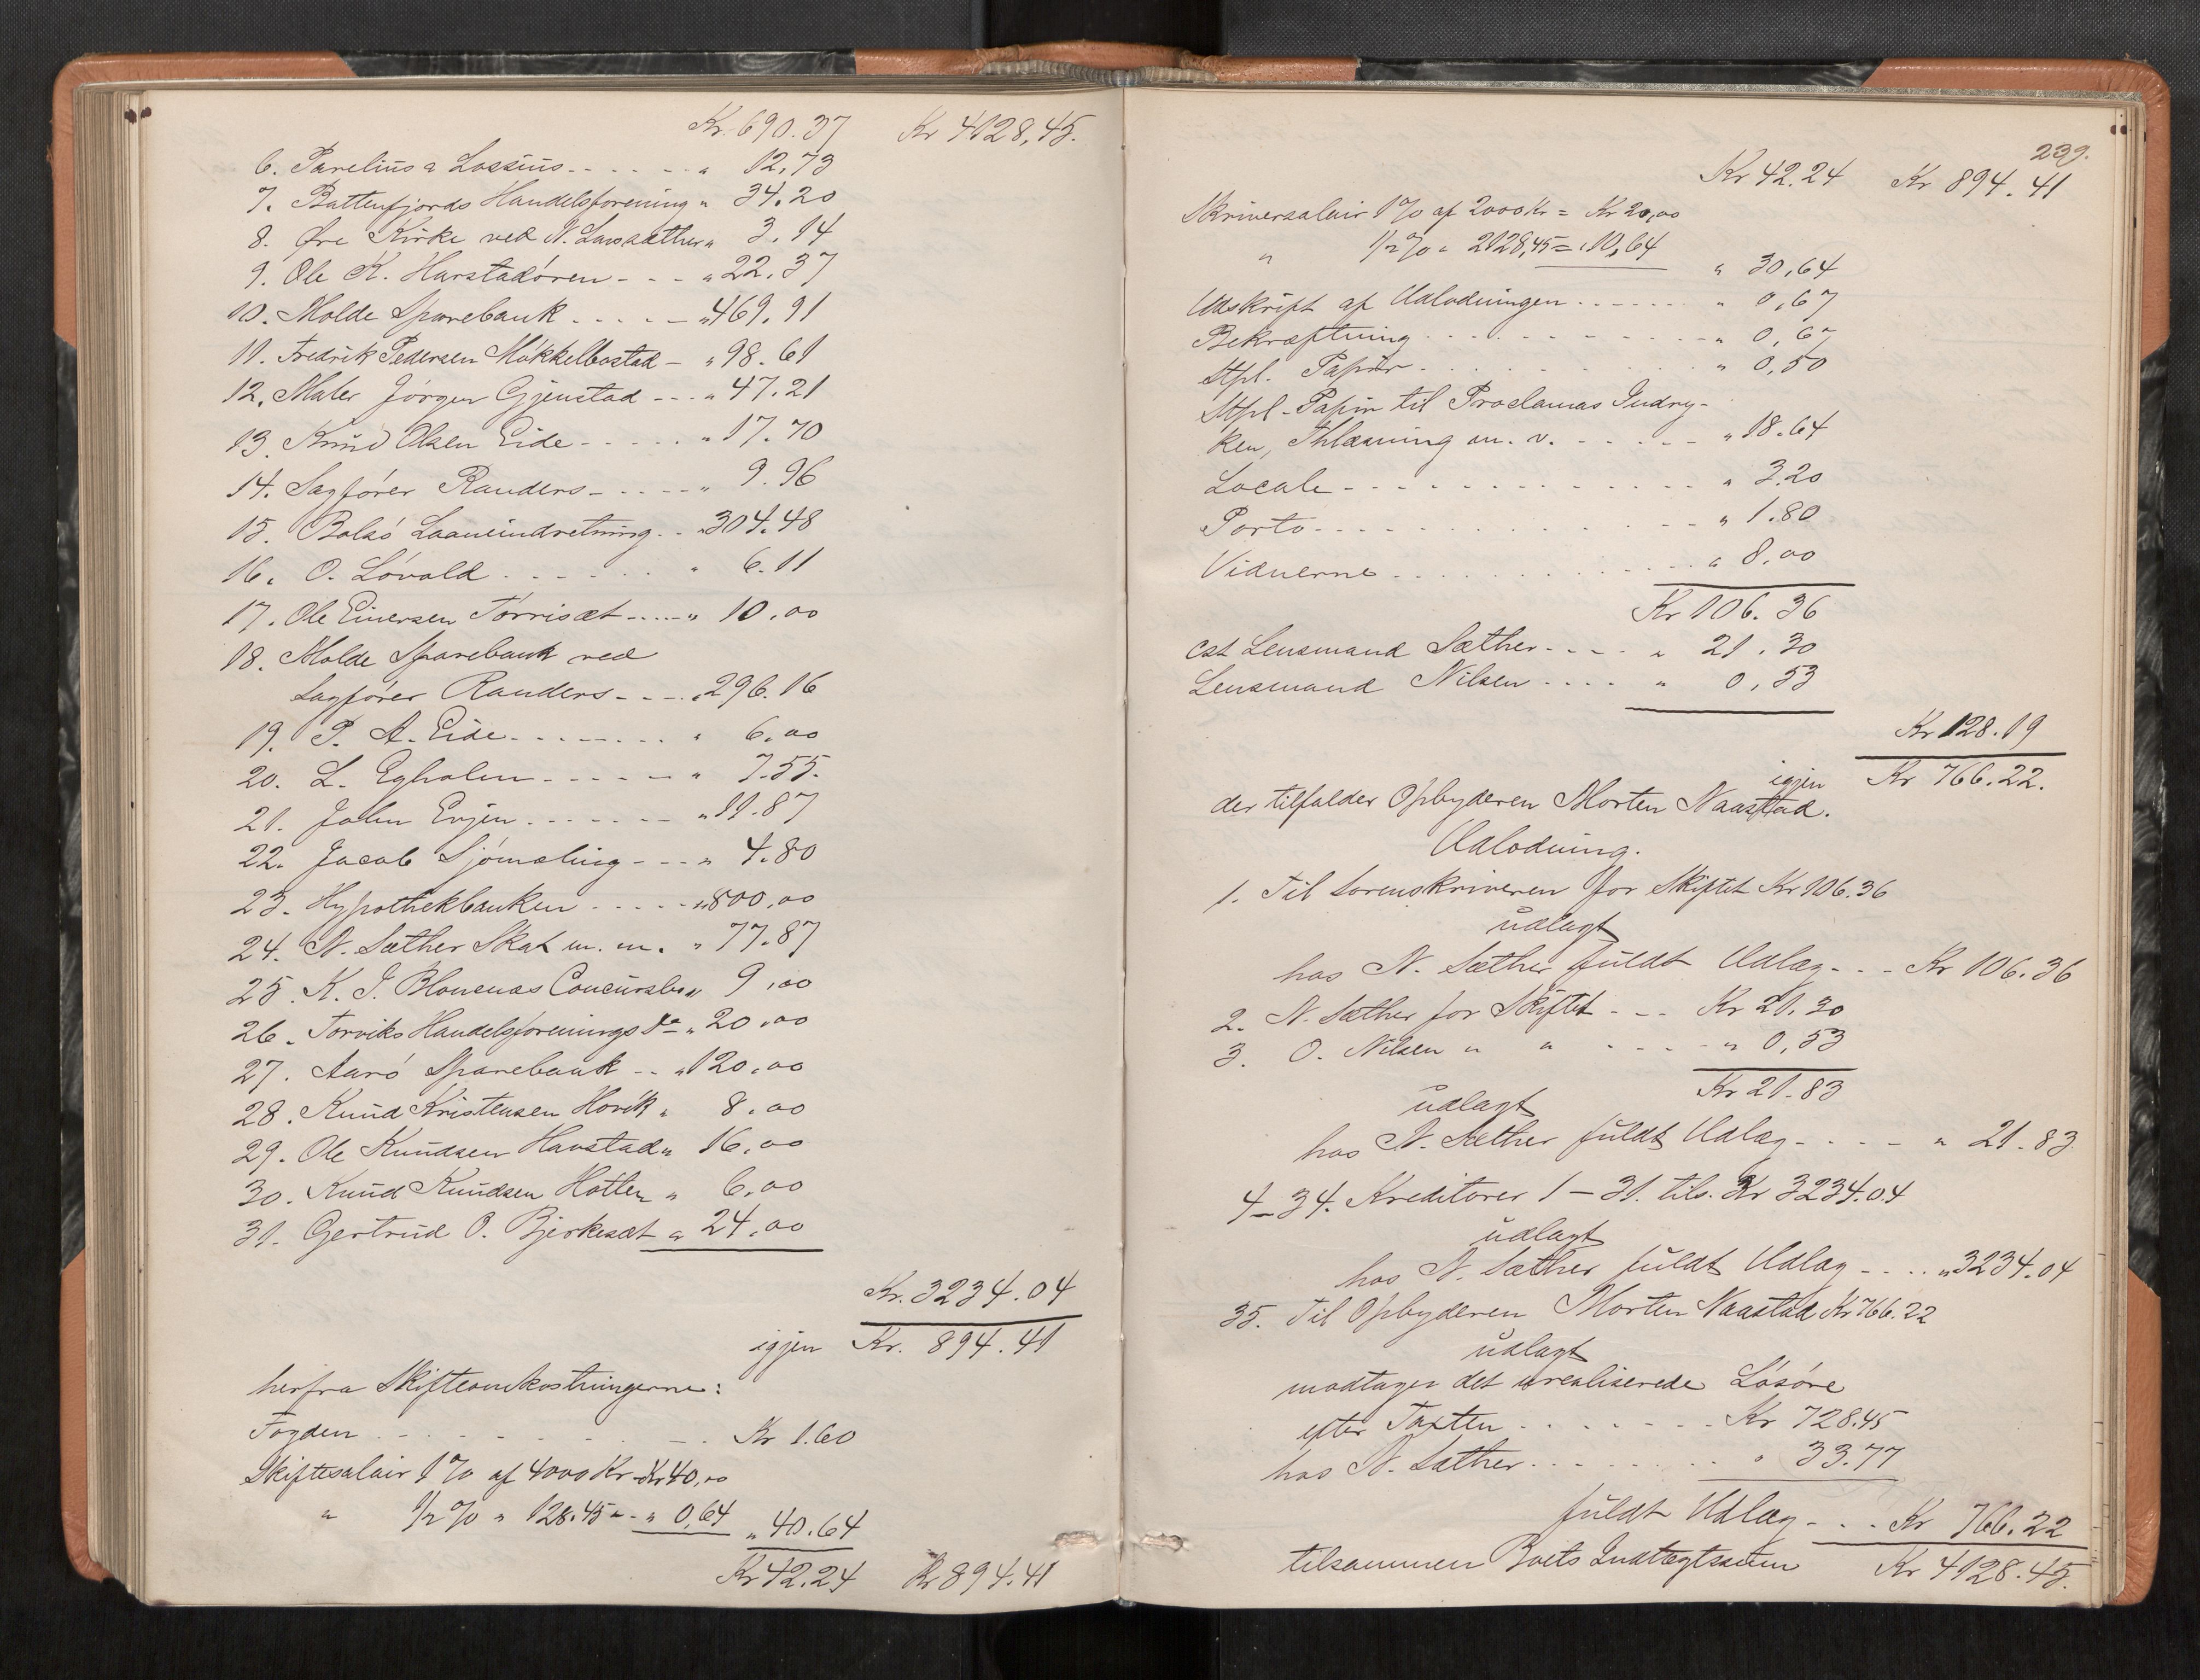 Kr. 690.37 Kr 4128,45.
6. Parelius & Lossius - - - - - " 12,73
7. Battenfjords Handelsforening " 34.20
8. Øre Kirke ved N. Sæther " 3.14
9. Ole K. Harstadøren - - - " 22.37
10. Molde Sparebank - - - - - " 469.91
11. Fredrik Pedersen Mökkelbostad - " 98.61
12. Maler Jörgen Gjenstad - - - " 47.21
13. Knud Olsen Eide - - - - - " 17.70
14. Sagförer Randers - - - - - " 9.96
15. Bolsö Laaneindretning - - " 304.48
16. O. Lövold - - - - - - " 6.11
17. Ole Einersen Torrisæt - - - - " 10,00
18. Molde Sparebank ved
Sagförer Randers - - - " 296.16
19. P. A. Eide - - - - - - - " 6,00
20. L. Egholm - - - - - " 7.55.
21. John Evjen - - - - - - " 11.87
22. Jacob Sjömæling - - - " 4.80
23. Hypothekbanken - - - - - " 800,00
24. N. Sæther Skat m. m. " 77.87
25. K. J. Concursbo " 9,00
26. Torviks Handelsforenings do " 20,00
27. Aarö Sparebank - - " 120,00
28. Knud Kristensen Hovik " 8,00
29. Ole Knudsen Havstad " 16,00
30. Knud Knudsen Hotten " 6,00
31. Gertrud O. Bjerkesæt " 24,00
Kr. 3234.04
igjen Kr. 894.41
herfra Skifteomkostningerne:
Fogden - - - - - - - - Kr 1.60
Skiftesalair 1% af 4000 Kr - Kr 40,00
" 1/2% " 128.45 - " 0,64 " 40.64
Kr 42.24 Kr 894.41
239.
Kr 42.24 Kr 894.41
Skriversalair 1% af 2000 Kr = Kr 20,00
" 1/2% " 2128,45 = " 10,64 " 30,64
Udskrift af Udlodningen - - - - - " 0,67
Bekræftning - - - - - - - - " 0,67
Stpl. Papir - - - - - - - " 0,50
Stpl. Papir til Proclamas Indry-
ken, Thlæsning m. v. - - - - - " 18.64
Locale - - - - - - - - - - - " 3.20
Porto - - - - - - - - - - - " 1.80
Vidnerne - - - - - - - - - " 8,00
Kr 106.36
cst Lensmand Sæther - - - - " 21.30
Lensmand Nilsen - - - - " 0,53
Kr 128.19
igjen Kr 766.22.
der tilfalder Opbyderen Morten Naastad.
Udlodning.
1. Til Sorenskriveren for Skiftet Kr 106.36
udlagt
hos N. Sæther fuldt Udlæg - - - Kr 106.36
2. N. Sæther for Skiftet - - - Kr 21.30
3. O. Nilsen " " - - - - " 0,53
Kr 21.83
udlagt
hos N. Sæther fuldt Udlæg - - - - - " 21.83
4-34. Kreditorer 1-31. tils. Kr 3234.04
udlagt
hos N. Sæther fuldt Udlæg - - - - " 3234.04
35. Til Opbyderen Morten Naastad Kr 766.22
udlagt
modtager det urealiserede Lösöre
efter Taxten - - - - - - - Kr 728.45
hos N. Sæther - - - - - - - - " 33.77
fuldt Udlæg - - - Kr 766.22
tilsammen Boets Indtægtssum Kr 4128.45.